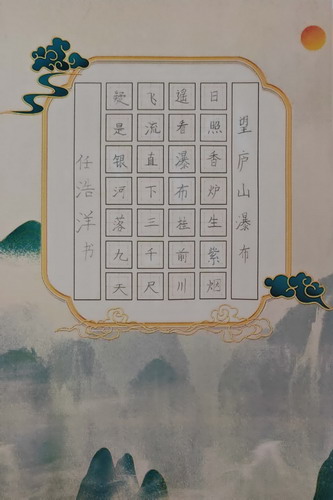 望庐山瀑布
日照香炉生紫烟
遥看瀑布挂前川
飞流直下三千尺
疑是银河落九天
任浩洋书